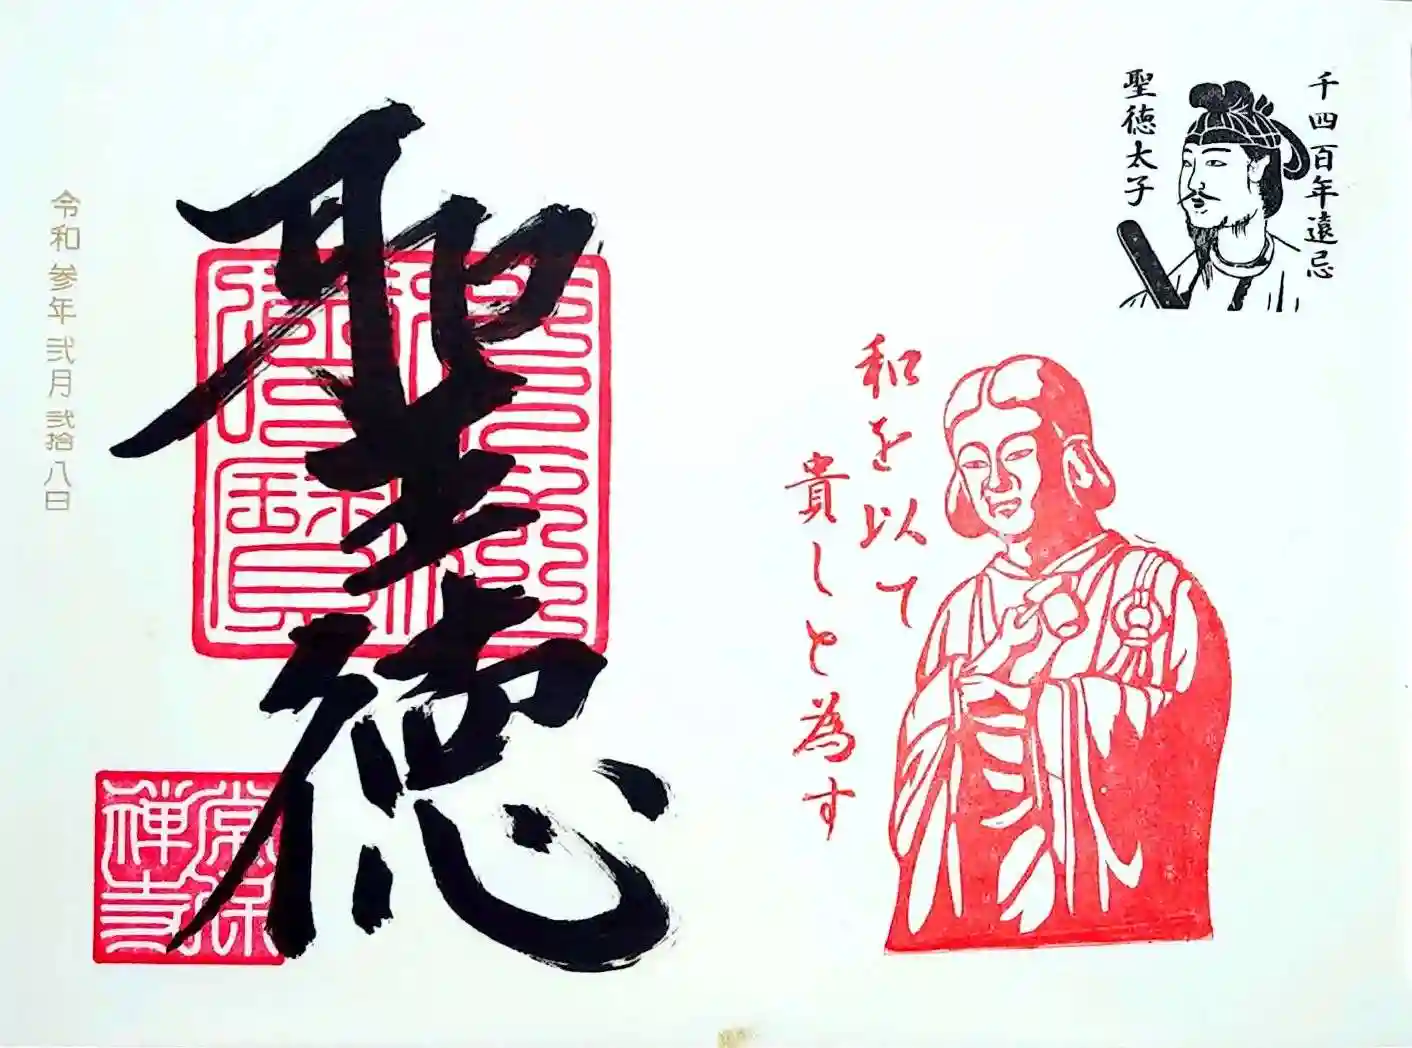 千四百年遠忌
聖徳太子
和を以て
貴しと為す
聖徳
常保
禅寺
令和参年弐月弐拾八日